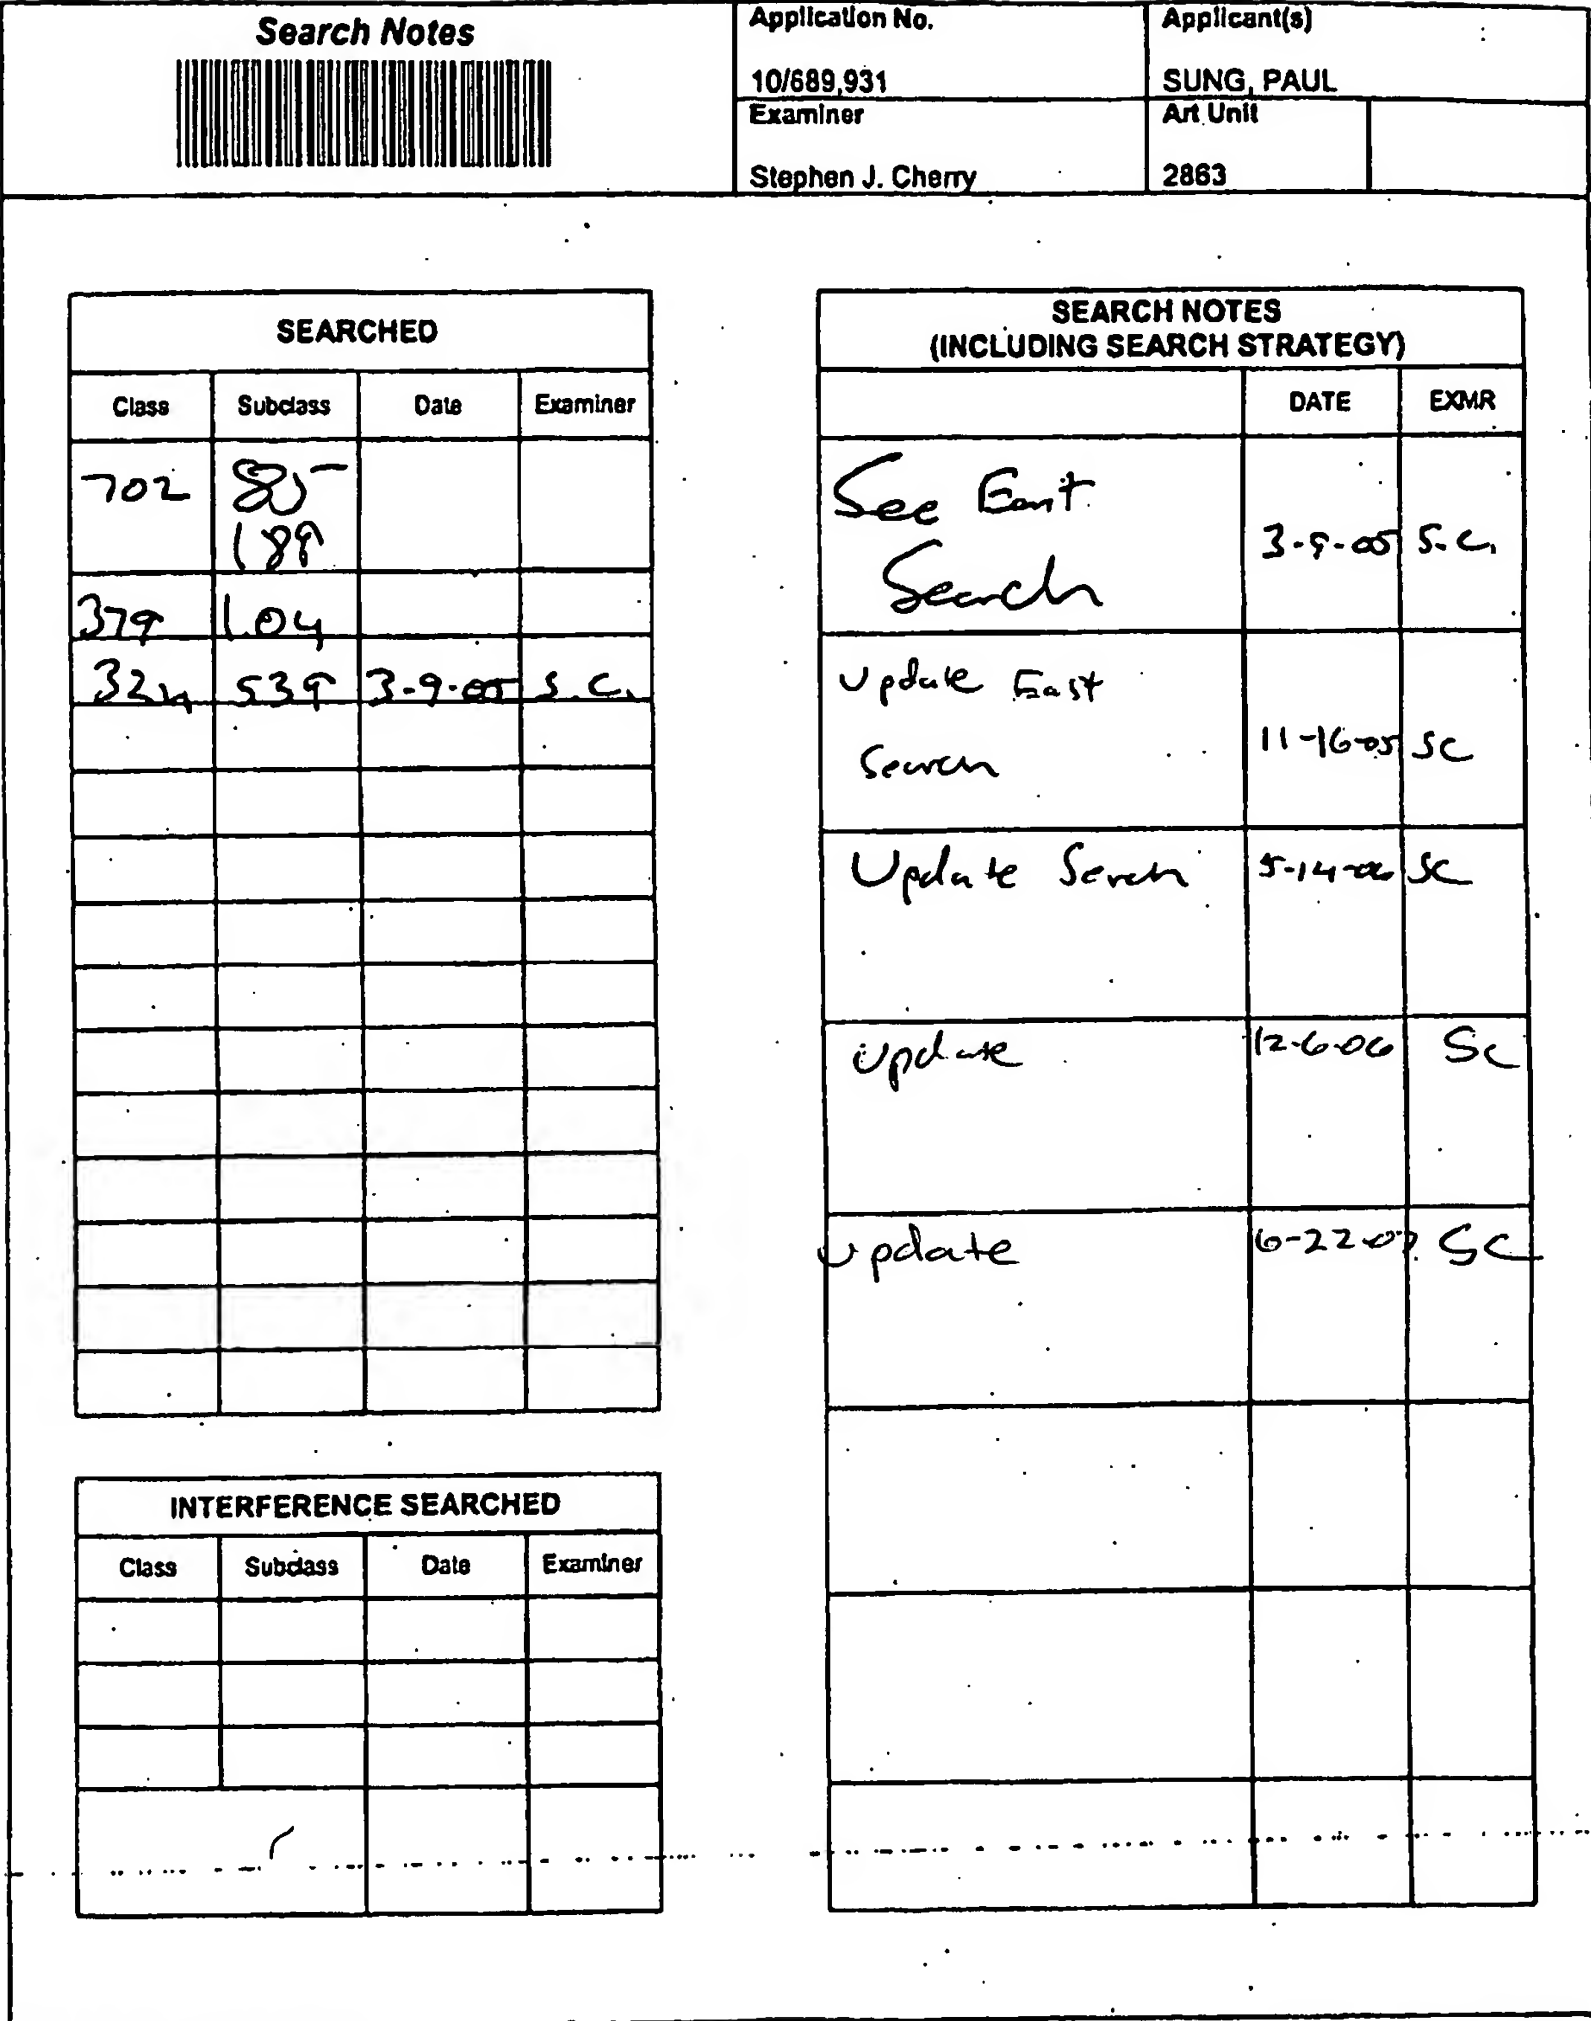 Search Notes
Application No.
10/689,931
Applicant(s)
SUNG, PAUL
Examiner
Stephen J. Cherry
Art Unit
2863
SEARCHED
Class Subclass Date Examiner
702 85
189
379 1.04
324 539 3-9-05 S.C.
INTERFERENCE SEARCHED
Class Subclass Date Examiner
SEARCH NOTES
(INCLUDING SEARCH STRATEGY)
DATE EXMR
See East
Search 3-9-05 S.C.
Update East
Search 11-16-05 SC
Update Search 5-14-06 SC
Update 12-6-06 SC
Update 6-22-07 SC